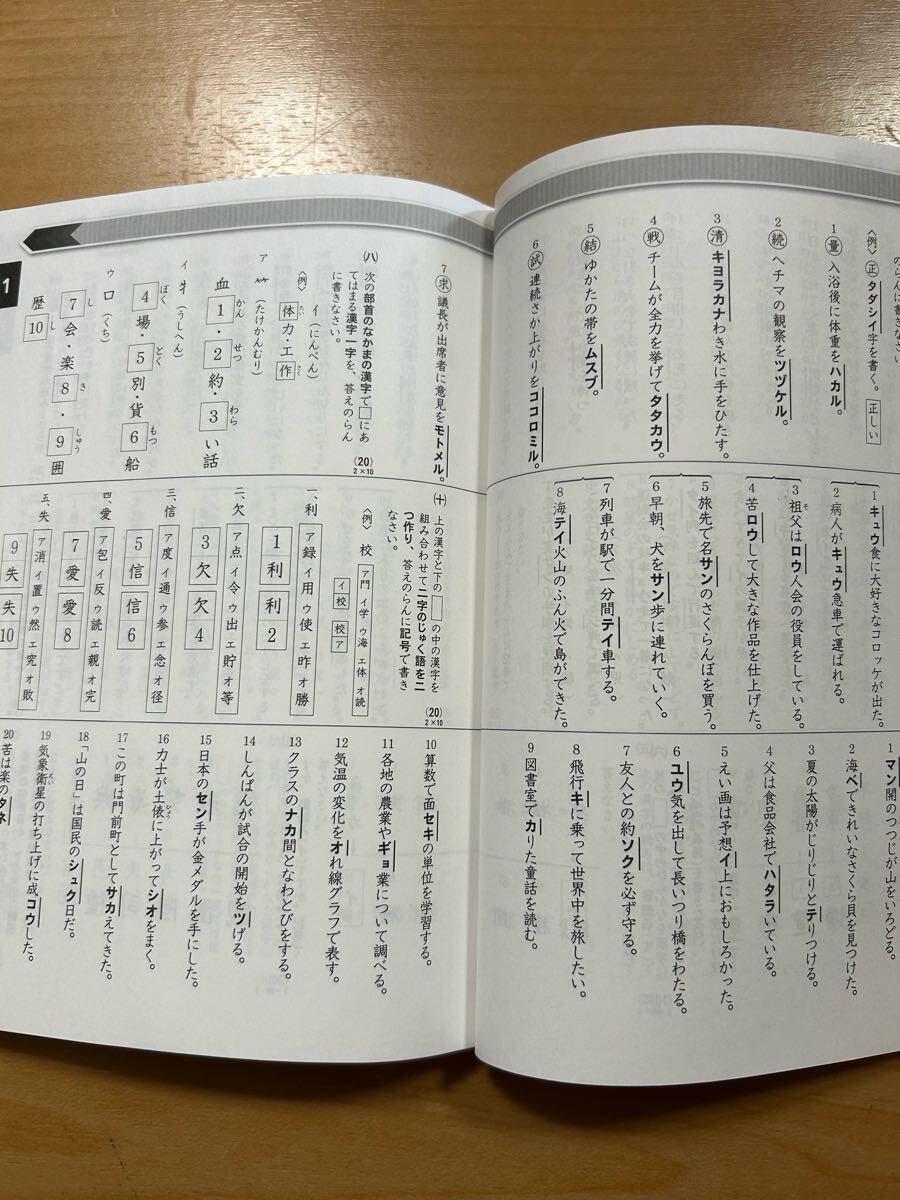 のらんに書きなさい
〈例〉㊣ タダシイ字を書く。 正しい
1 量 入浴後に体重をハカル。
2 続 ヘチマの観察をツヅケル。
3 清 キヨラカナわき水に手をひたす。
4 戦 チームが全力を挙げてタタカウ。
5 結 ゆかたの帯をムスブ。
6 試 連続さか上がりをココロミル。
7 求 議長が出席者に意見をモトメル。
1 キュウ食に大好きなコロッケが出た。
2 病人がキュウ急車で運ばれる。
3 祖父はロウ人会の役員をしている。
そ
4 苦ロウして大きな作品を仕上げた。
5 旅先で名サンのさくらんぼを買う。
6 早朝、犬をサン歩に連れていく。
7 列車が駅で一分間テイ車する。
8 海テイ火山のふん火で島ができた。
1 マン開のつつじが山をいろどる。
2 海べできれいなさくら貝を見つけた。
3 夏の太陽がじりじりとテりつける。
4 父は食品会社でハタラいている。
5 えい画は予想イ上におもしろかった。
6 ユウ気を出して長いつり橋をわたる。
7 友人との約ソクを必ず守る。
8 飛行キに乗って世界中を旅したい。
9 図書室でカりた童話を読む。
(八) 次の部首のなかまの漢字で□にあ
てはまる漢字一字を、答えのらん
に書きなさい。
(20)
2×10
〈例〉 イ(にんべん)
体力・工作
たい さく
ア ⺮(たけかんむり)
血1・2約・3い話
かん せつ わら
イ 牜(うしへん)
4場・5別・貨6船
ぼく とく もつ
ウ 口(くち)
7会・楽8・9囲
し き しゅう
歴10
し
1
(十) 上の漢字と下の□の中の漢字を
組み合わせて二字のじゅく語を二
つ作り、答えのらんに記号で書き
なさい。
(20)
2×10
〈例〉 校 ア門 イ学 ウ海 エ体 オ読
イ校 校ア
一、利 ア録 イ用 ウ使 エ昨 オ勝
1利 利2
二、欠 ア点 イ令 ウ出 エ貯 オ等
3欠 欠4
三、信 ア度 イ通 ウ参 エ念 オ径
5信 信6
四、愛 ア包 イ反 ウ読 エ親 オ完
7愛 愛8
五、失 ア消 イ置 ウ然 エ究 オ敗
9失 失10
10 算数で面セキの単位を学習する。
11 各地の農業やギョ業について調べる。
12 気温の変化をオれ線グラフで表す。
13 クラスのナカ間となわとびをする。
14 しんぱんが試合の開始をツげる。
15 日本のセン手が金メダルを手にした。
16 力士が土俵に上がってシオをまく。
ひょう
17 この町は門前町としてサカえてきた。
18 「山の日」は国民のシュク日だ。
19 気象衛星の打ち上げに成コウした。
えい
20 苦は楽のタネ